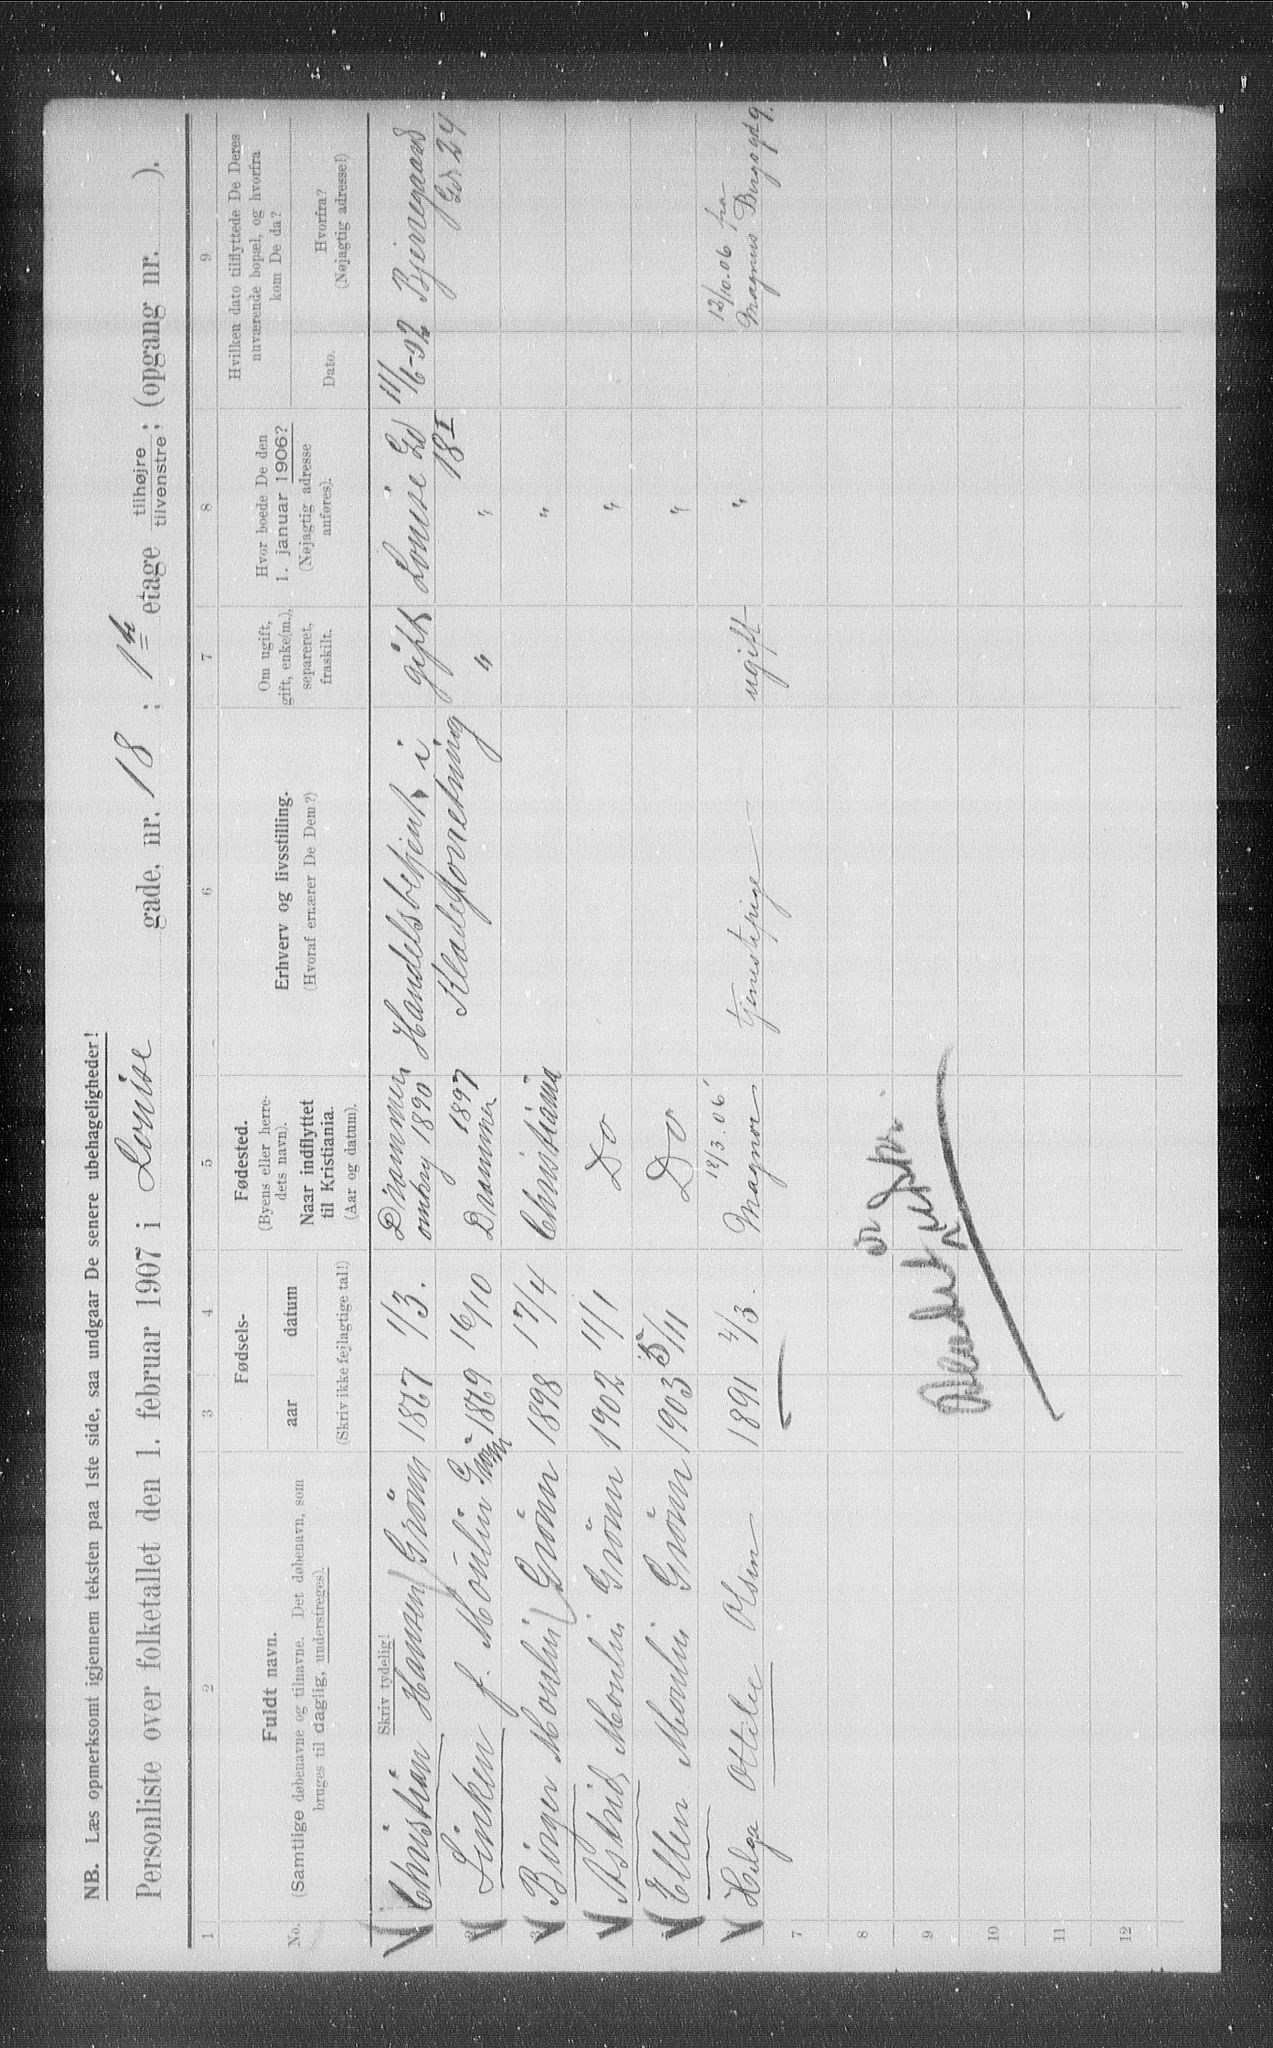 NB. Læs opmerksomt igjennem teksten paa 1ste side, saa undgaar De senere ubehageligheder!
Personliste over folketallet den 1. februar 1907 i Louise gade, nr. 18 ; 1ste etage tilhøjre/tilvenstre; (opgang nr. ).
1 2 3 4 5 6 7 8 9
No.
Fuldt navn.
(Samtlige døbenavne og tilnavne. Det døbenavn, som
bruges til daglig, understreges).
Skriv tydelig!
Fødsels-
aar datum
(Skriv ikke fejlagtige tal!)
Fødested.
(Byens eller herre-
dets navn).
Naar indflyttet
til Kristiania.
(Aar og datum).
Erhverv og livsstilling.
(Hvoraf ernærer De Dem?)
Om ugift,
gift, enke(m.),
separeret,
fraskilt.
Hvor boede De den
1. januar 1906?
(Nøjagtig adresse
anføres).
Hvilken dato tilflyttede De Deres
nuværende bopæl, og hvorfra
kom De da?
Dato.
Hvorfra?
(Nøjagtig adresse!)
Christian Hansen Grönn 1867 1/3. Drammen omkring 1890 Handelsbetjent i gift Louise Gd 18 I 11/6-02 Bjerregaards Gd. 24
2 Linken f. Moulin Grönn 1869 16/10 1897 Drammen Klædeforretning " "
3 Birger Moulin Grönn 1898 17/4 Christiania "
Astrid Moulin Grönn 1902 11/1 Do "
Ellen Moulin Grönn 1903 5/11 Do "
Helga Ottilie Olsen 1891 4/3. 18/3.06 Magnor tjenestepige ugift " 12/10.06 fra Magnus Bergs gd 9.
7
8
9
10
11
12